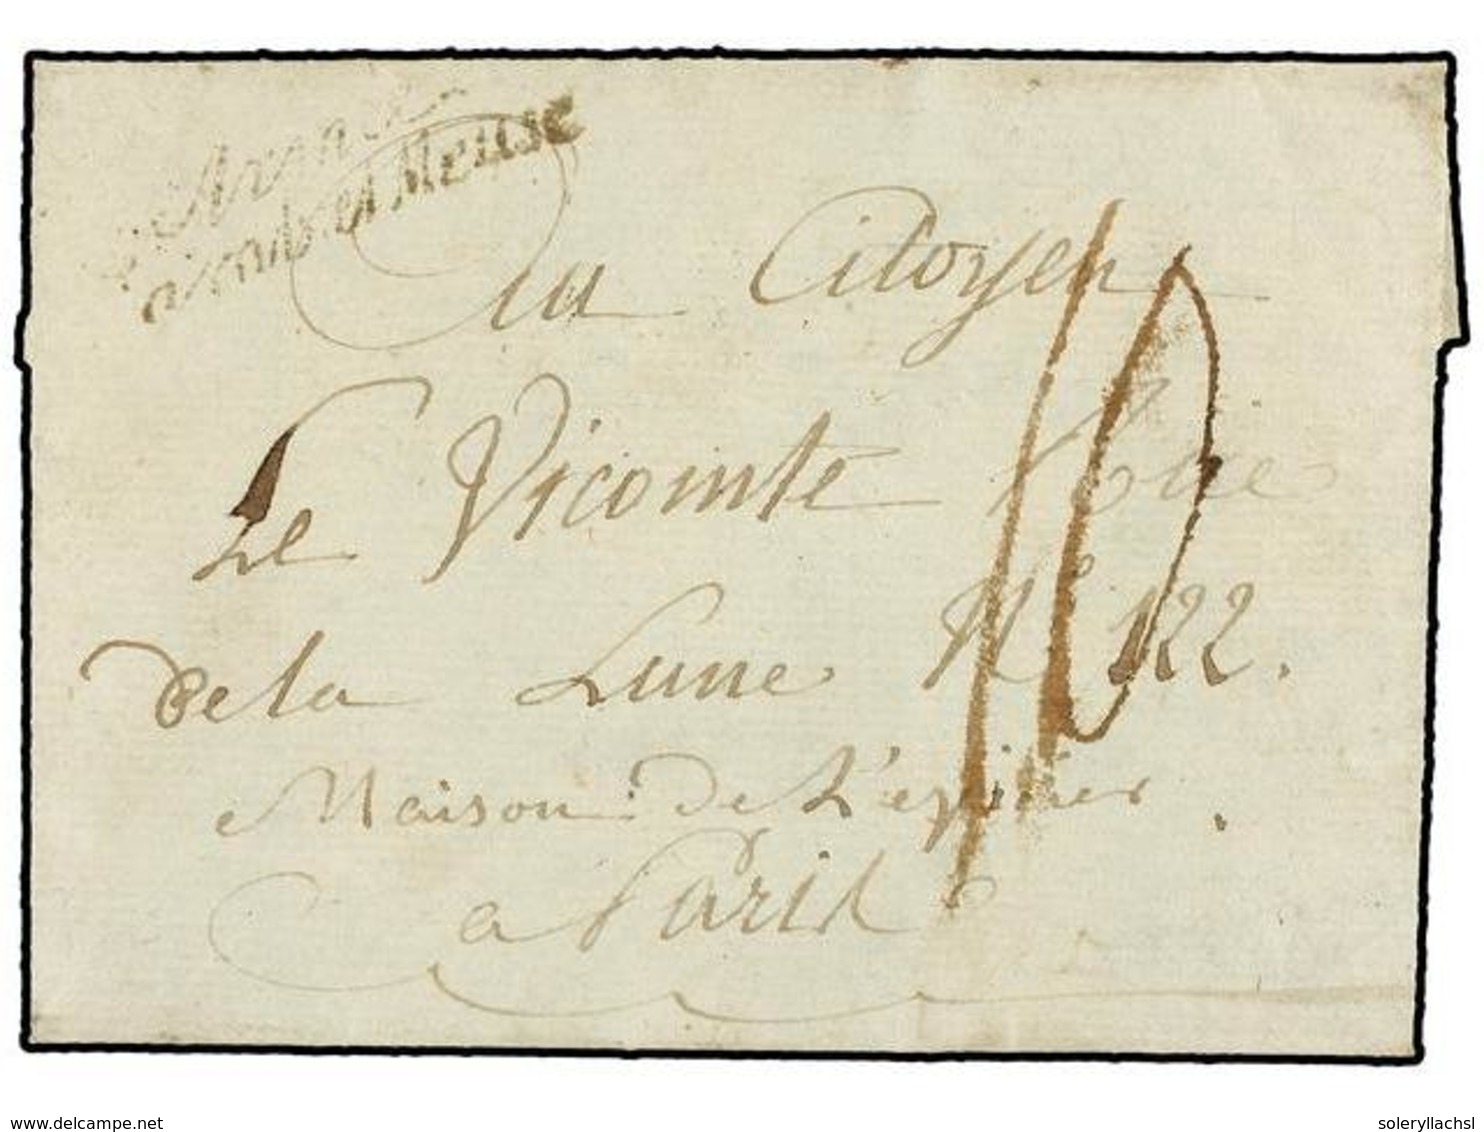 Armée
Sambre et Meuse
Au Citoyen
Le Vicomte Rue
de la Lune N° 122.
Maison de L'epicier
a Paris
10
www.delcampe.net
soleryllachsl